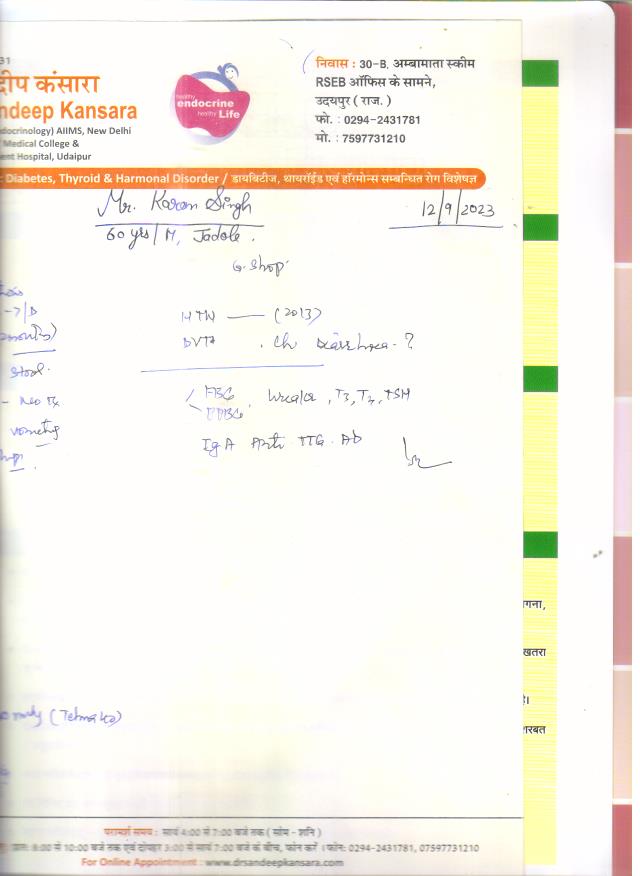 31
दीप कंसारा
ndeep Kansara
docrinology) AIIMS, New Delhi
Medical College &
ent Hospital, Udaipur
healthy
endocrine
healthy Life
निवास : 30-B, अम्बामाता स्कीम
RSEB ऑफिस के सामने,
उदयपुर ( राज. )
फो. : 0294-2431781
मो. : 7597731210
: Diabetes, Thyroid & Harmonal Disorder / डायबिटीज, थायरॉईड एवं हॉरमोन्स सम्बन्धित रोग विशेषज्ञ
Mr. Karan Singh
12/9/2023
60 yrs/M, Jadole.
G. Shop.
HTN — (2013)
Ch Diarrhoea - ?
stool.
FBG
PPBG
Urea/cr, T3, T4, TSH
- No Rx
vometing
IgA Anti TTG. Ab
गना,
खतरा
है।
शरबत
परामर्श समय : सायं 4:00 से 7:00 बजे तक ( सोम - शनि )
प्रातः 8:00 से 10:00 बजे तक एवं दोपहर 3:00 से सायं 7:00 बजे के बीच, फोन करें । फोन: 0294-2431781, 07597731210
For Online Appointment : www.drsandeepkansara.com